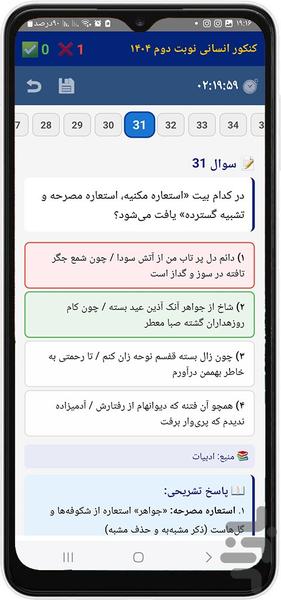 ۱۹:۱۶
۹۰درصد
کنکور انسانی نوبت دوم ۱۴۰۴
1
0
۰۲:۱۹:۵۹
28
29
30
31
32
33
34
سوال 31
در کدام بیت «استعاره مکنیه، استعاره مصرحه و
تشبیه گسترده» یافت می‌شود؟
۱) دائم دل پر تاب من از آتش سودا / چون شمع جگر
تافته در سوز و گداز است
۲) شاخ از جواهر آنک آذین عید بسته / چون کام
روزهداران گشته صبا معطر
۳) چون زال بسته قفسم نوحه زان کنم / تا رحمتی به
خاطر بهممن درآورم
۴) همچو آن فتنه که دیوانهام از رفتارش / آدمیزاده
ندیدم که پری‌وار برفت
منبع: ادبیات
پاسخ تشریحی:
۱. استعاره مصرحه: «جواهر» استعاره از شکوفه‌ها و
گل‌هاست (ذکر مشبه‌به و حذف مشبه)